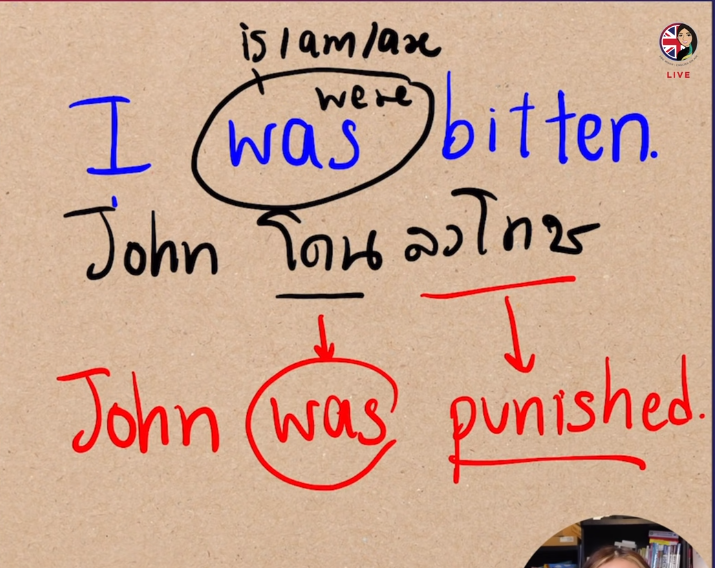 is/am/are
were
I was bitten.
John โดน ลงโทษ
John was punished.
LIVE